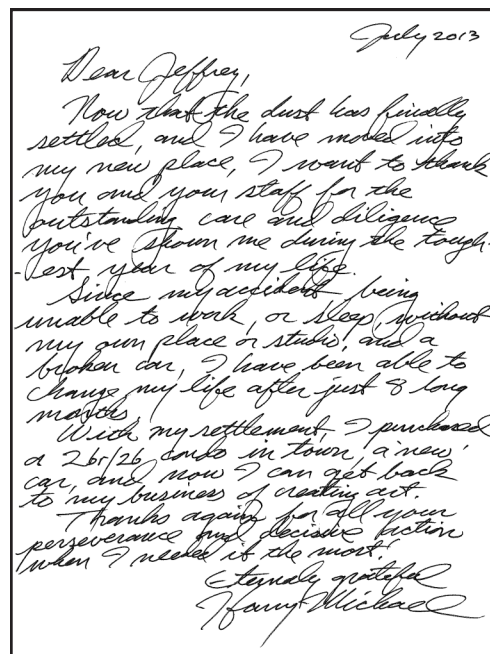 July 2013
Dear Jeffrey,
Now that the dust has finally
settled, and I have moved into
my new place, I want to thank
you and your staff for the
outstanding care and diligence
you've shown me during the tough-
-est year of my life.
Since my accident, being
unable to work, or sleep, without
my own place or studio, and a
broken car, I have been able to
change my life after just 8 long
months.
With my settlement, I purchased
a 2br/2b condo in town, a 'new'
car, and now I can get back
to my business of creating art.
Thanks again for all your
perseverance and decisive action
when I needed it the most!
Eternaly grateful
Harry Michael